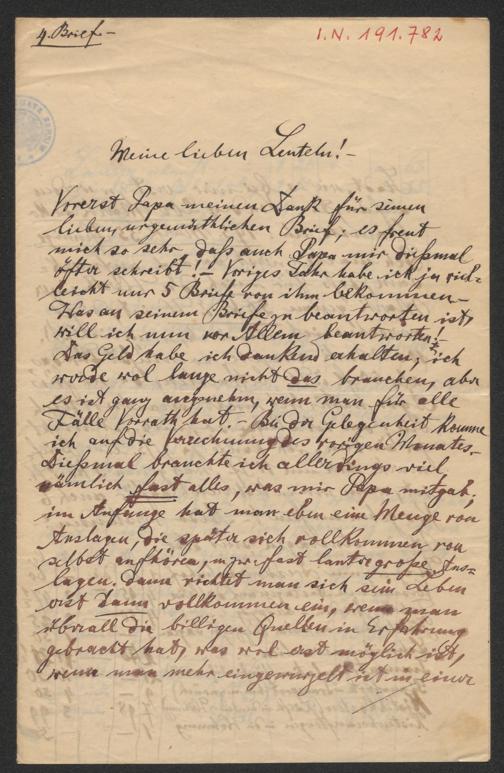 4. Brief.-
I.N. 191.782
Meine lieben Leuteln!-
Vorerst Papa meinen Dank für seinen
lieben, urgemüthlichen Brief; es freut
mich so sehr, daß auch Papa mir dießmal
öfter schreibt!- Voriges Jahr habe ich ja viel-
leicht nur 5 Briefe von ihm bekommen-
Was an seinem Briefe zu beantworten ist,
will ich nun vor Allem beantworten!-
Das Geld habe ich dankend erhalten; ich
werde wol lange nicht das brauchen, aber
es ist ganz angenehm, wenn man für alle
Fälle Vorrath hat.- Bei der Gelegenheit komme
ich auf die Verrechnung des vorigen Monates.-
Dießmal brauchte ich allerdings viel,
nämlich fast alles, was mir Papa mitgab;
im Anfange hat man eben eine Menge von
Auslagen, die später sich vollkommen von
selbst aufhören, u. zw. fast lauter große Aus-
lagen. Dann richtet man sich sein Leben
erst dann vollkommen ein, wenn man
überall die billigen Quellen in Erfahrung
gebracht hat, was wol erst möglich ist,
wenn man mehr eingewurzelt ist in einer